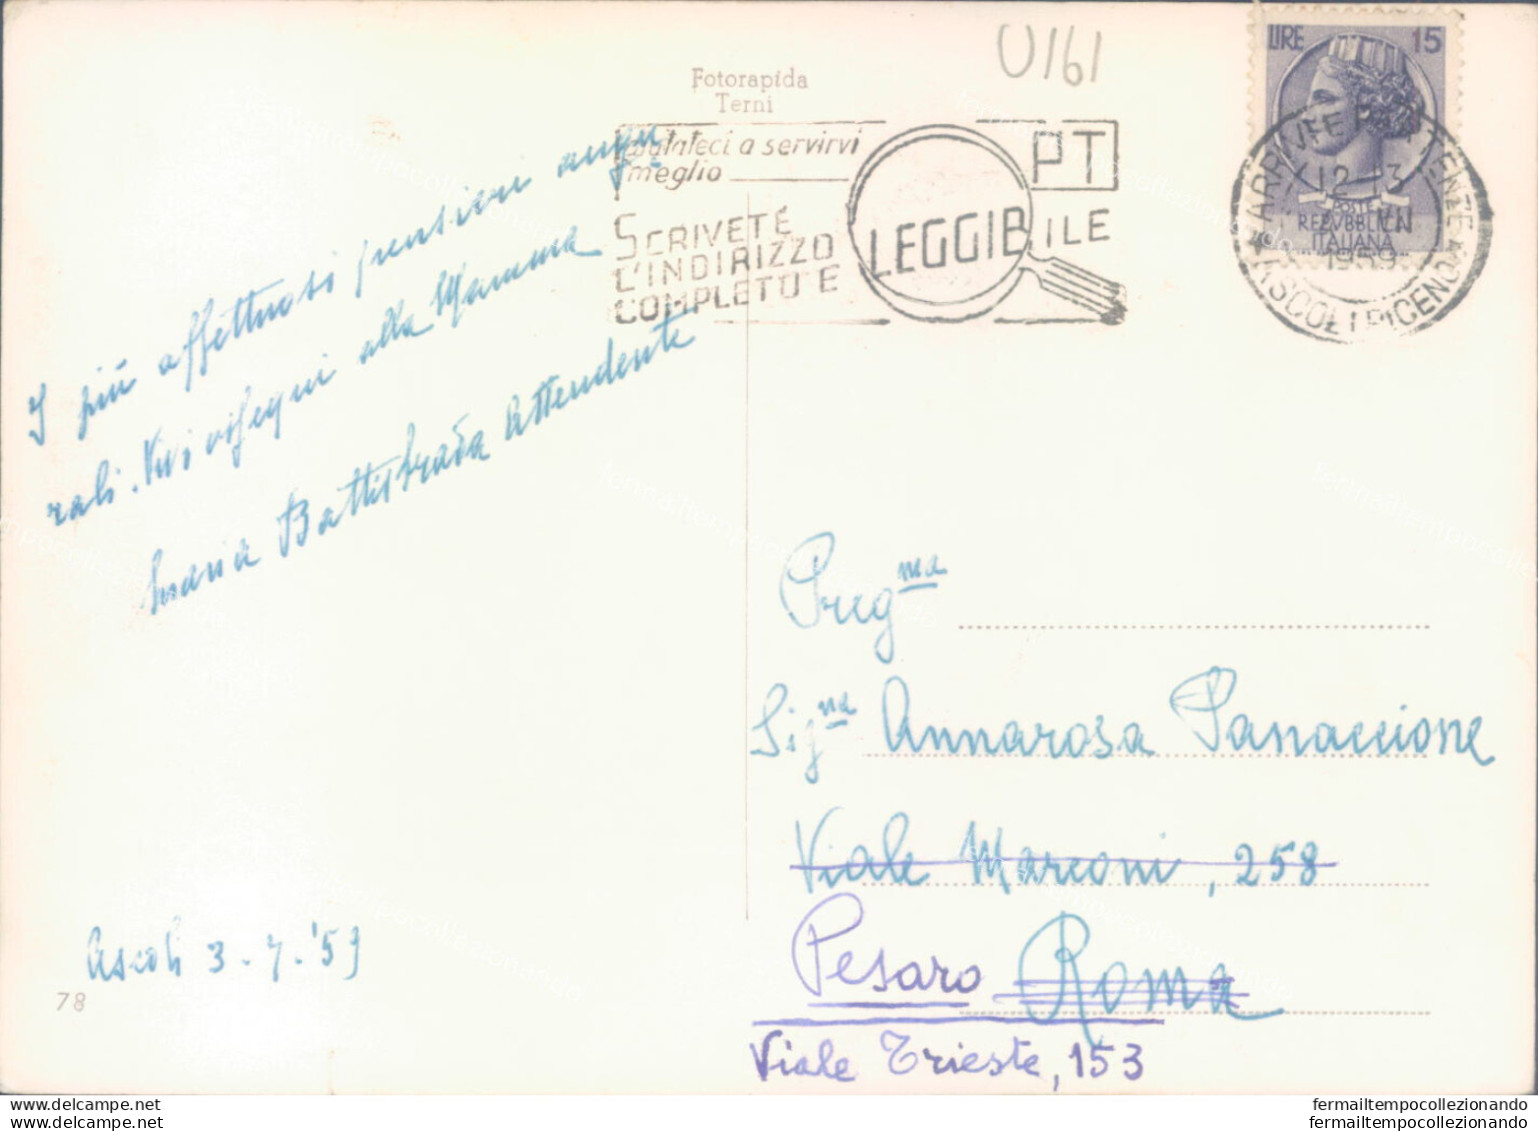 U161
LIRE 15
Fotorapida
Terni
aiutateci a servirvi
meglio
PT
SCRIVETE
L'INDIRIZZO
COMPLETO E
LEGGIBILE
12 - 13
3 VII
1959
POSTE
REPVBBLICA
ITALIANA
ASCOLI PICENO
I più affettuosi pensieri augu
rali. Vivi ossequi alla Mamma
Maria Battistrada Attendente
Preg.ma
Sig.na Annarosa Panaccione
Viale Marconi, 258
Pesaro Roma
Viale Trieste, 153
Ascoli 3-7-'59
78
www.fermailtempocollezionando.it
www.fermailtempocollezionando.it
fermailtempocollezionando
fermailtempocollezionando